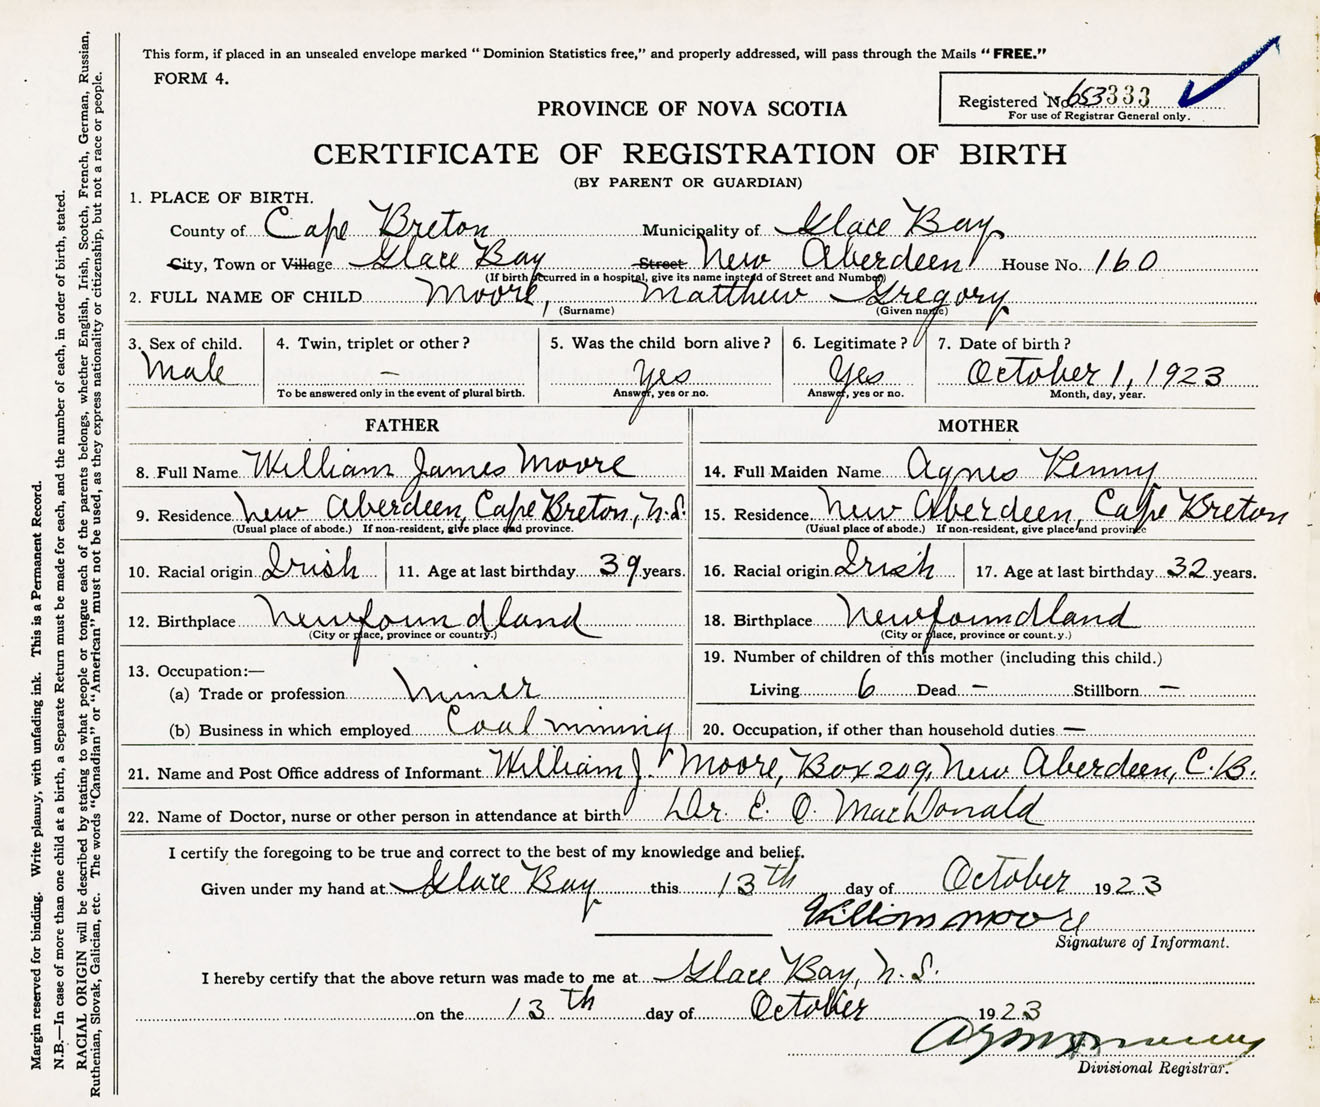 This form, if placed in an unsealed envelope marked "Dominion Statistics free," and properly addressed, will pass through the Mails "FREE."
FORM 4.
Registered No. 653333
For use of Registrar General only.
PROVINCE OF NOVA SCOTIA
CERTIFICATE OF REGISTRATION OF BIRTH
(BY PARENT OR GUARDIAN)
1. PLACE OF BIRTH.
County of Cape Breton Municipality of Glace Bay
City, Town or Village Glace Bay Street New Aberdeen House No. 160
(If birth occurred in a hospital, give its name instead of Street and Number)
2. FULL NAME OF CHILD Moore, Matthew Gregory
(Surname) (Given name)
3. Sex of child. 4. Twin, triplet or other? 5. Was the child born alive? 6. Legitimate? 7. Date of birth?
Male — Yes Yes October 1, 1923
To be answered only in the event of plural birth. Answer, yes or no. Answer, yes or no. Month, day, year.
FATHER MOTHER
8. Full Name William James Moore 14. Full Maiden Name Agnes Kenny
9. Residence New Aberdeen, Cape Breton, N.S. 15. Residence New Aberdeen, Cape Breton
(Usual place of abode.) If non-resident, give place and province. (Usual place of abode.) If non-resident, give place and province
10. Racial origin Irish 11. Age at last birthday 39 years. 16. Racial origin Irish 17. Age at last birthday 32 years.
12. Birthplace Newfoundland 18. Birthplace Newfoundland
(City or place, province or country.) (City or place, province or count.y.)
13. Occupation:— 19. Number of children of this mother (including this child.)
(a) Trade or profession Miner Living 6 Dead — Stillborn —
(b) Business in which employed Coal mining 20. Occupation, if other than household duties —
21. Name and Post Office address of Informant William J. Moore, Box 209, New Aberdeen, C.B.
22. Name of Doctor, nurse or other person in attendance at birth Dr. E. O. MacDonald
I certify the foregoing to be true and correct to the best of my knowledge and belief.
Given under my hand at Glace Bay this 13th day of October 1923
William Moore
Signature of Informant.
I hereby certify that the above return was made to me at Glace Bay, N.S.
on the 13th day of October 1923
Divisional Registrar.
Margin reserved for binding. Write plainly, with unfading ink. This is a Permanent Record.
N.B.—In case of more than one child at a birth, a Separate Return must be made for each, and the number of each, in order of birth, stated.
RACIAL ORIGIN will be described by stating to what people or tongue each of the parents belongs, whether English, Irish, Scotch, French, German, Russian,
Ruthenian, Slovak, Galician, etc. The words "Canadian" or "American" must not be used, as they express nationality or citizenship, but not a race or people.